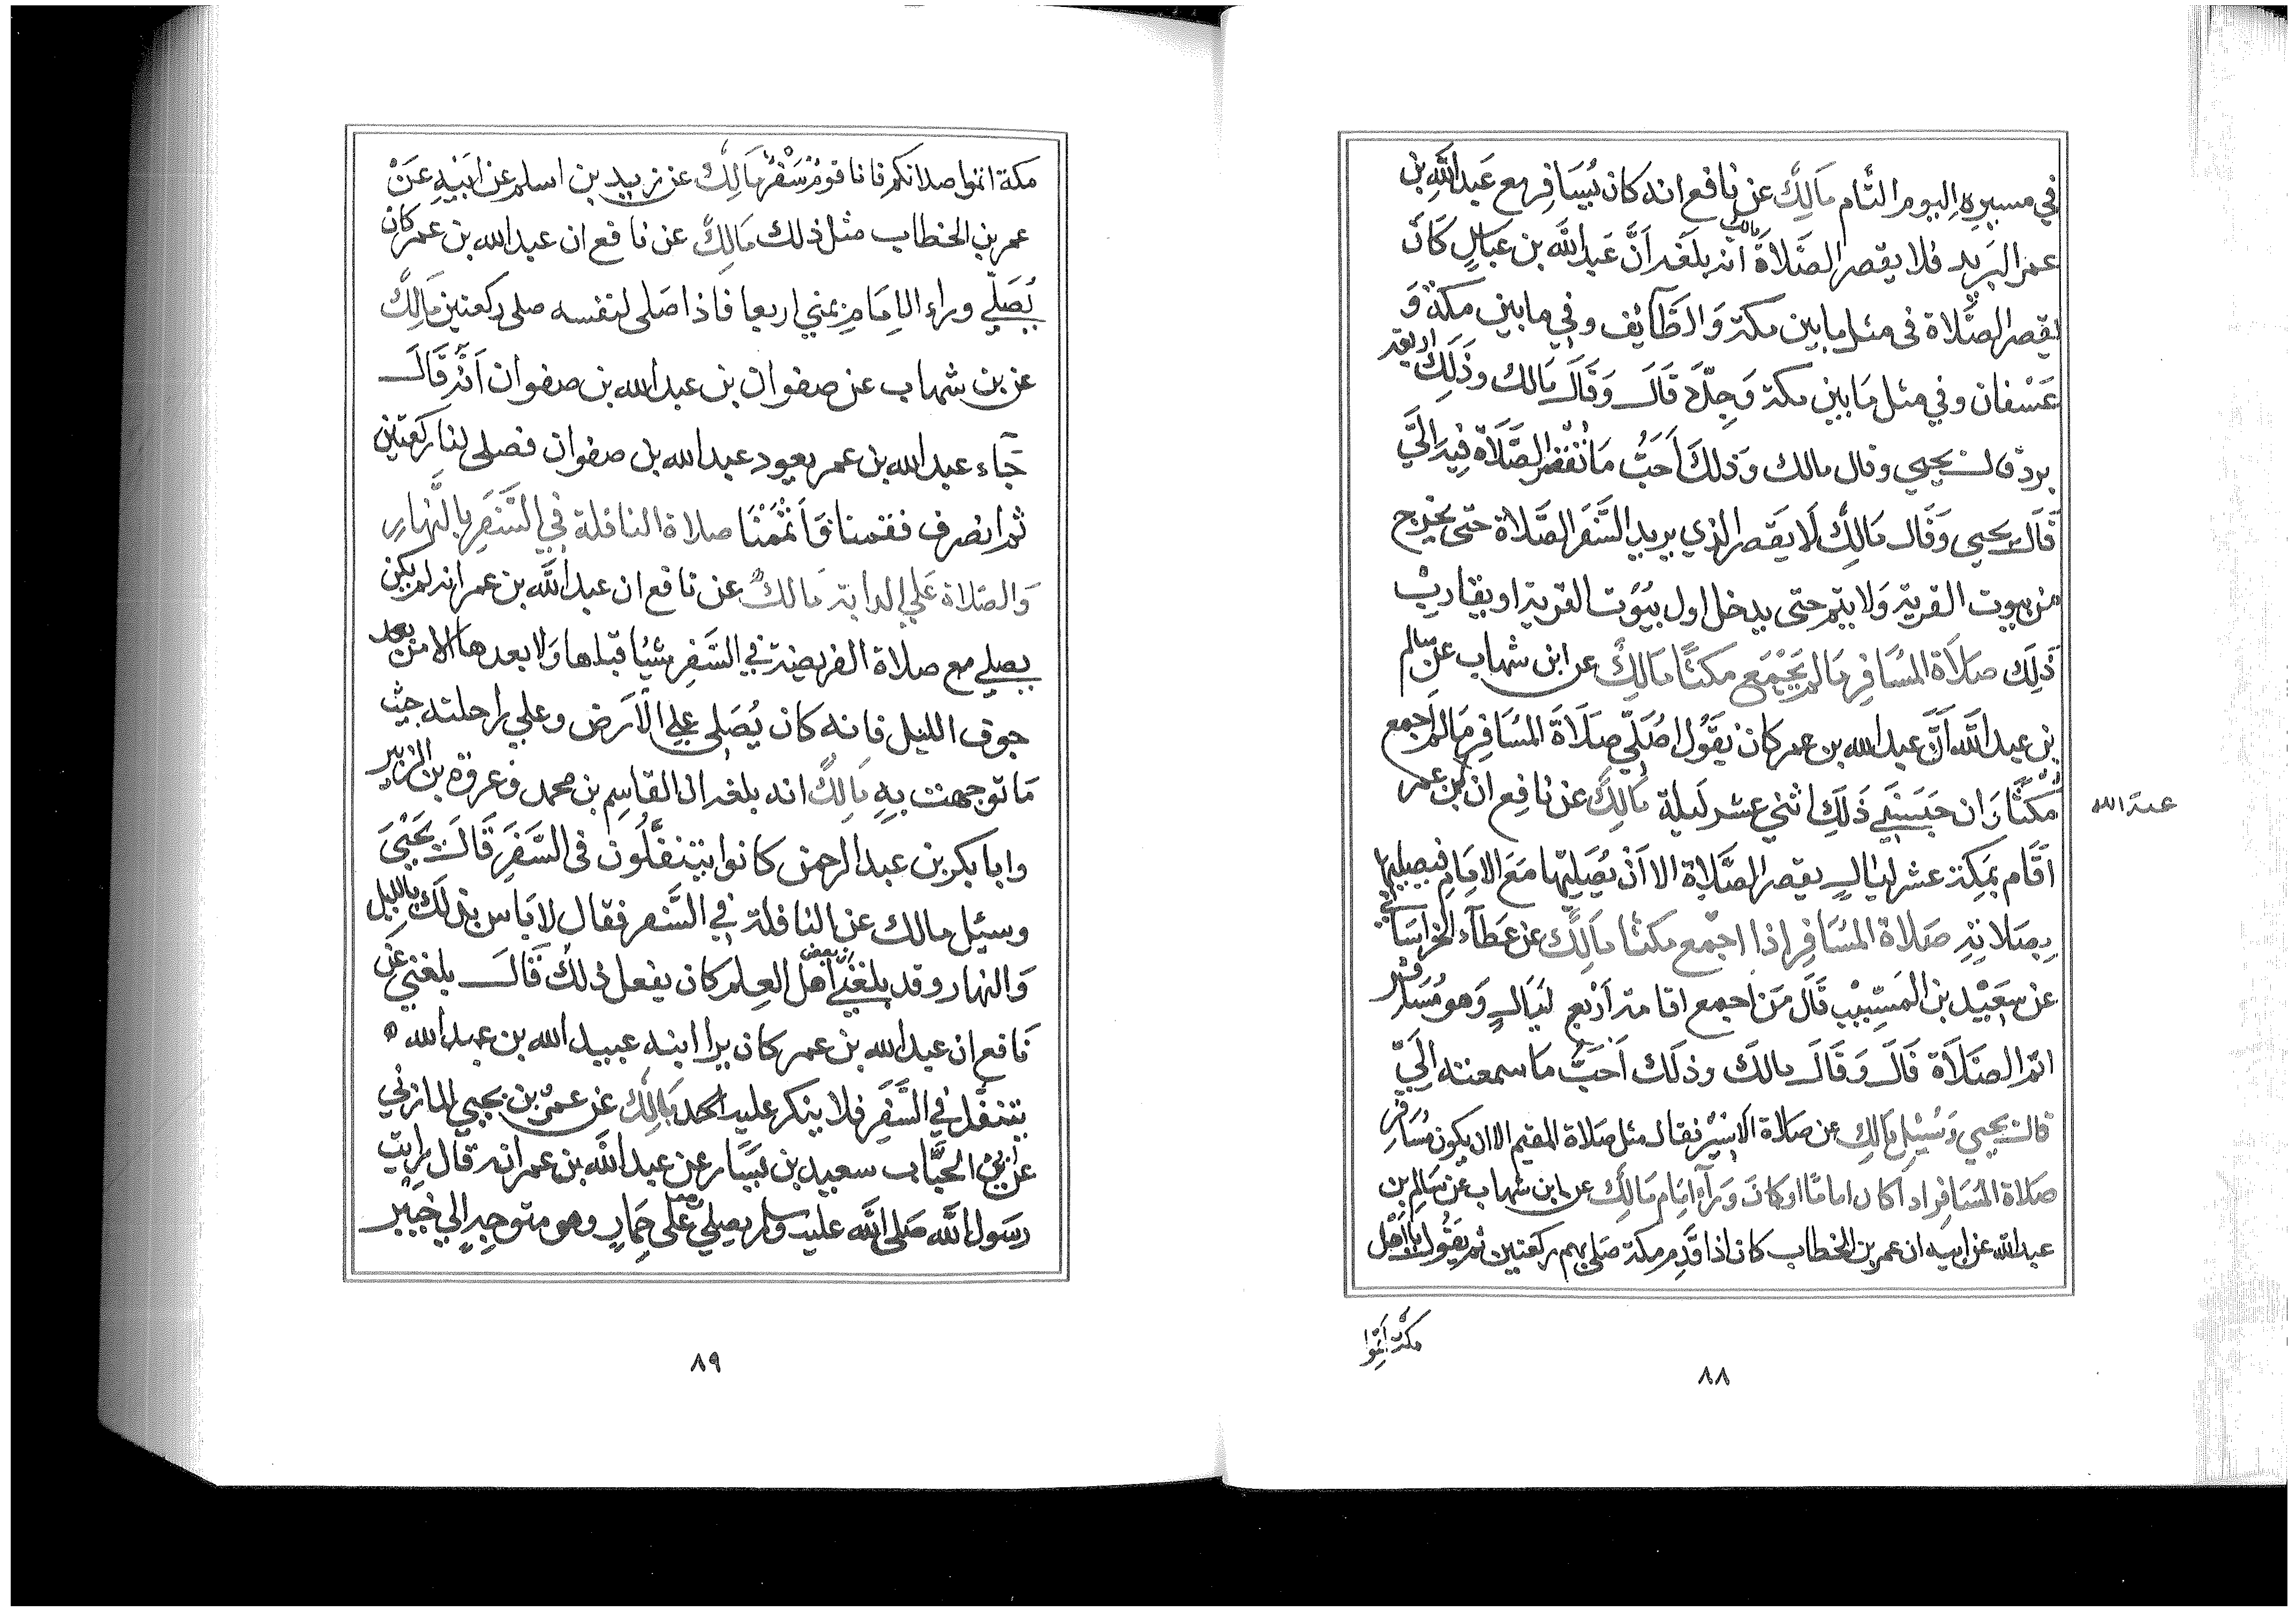 في مسيره اليوم التام مَالِكٌ عن نافع انه كان يُسَافِر مع عَبد اللّه بن
عمر البَريد فلا يقصر الصَّلاةَ مالك انه بلغه اَنَّ عَبد اللّه بن عباسٍ كَانَ
يقصر الصَّلاة في مثل ما بين مكة وَالطَّآئِف وفي ما بين مكة وَ
عَسْفان وفي مثل مَا بين مكة وَجِدّة قَالَ وَقَالَ مَالك وذَلِكَ اربعة
برد قالــ يحيي وقال مالك وَذلكَ اَحَبُّ مَا تُقْصَرُ الصَّلَاة فِيه اِلَيَّ
قَالَ يحيي وَقَالَ مَالِكٌ لَا يَقصر الذي يريد السَّفَر الصَّلاة حتى يخرج
من بيوت القرية وَلا يتم حتى يدخل اول بيُوت القرية او يقارب
ذَلِك صَلَاة المُسَافِر مَا لم يَجْمَع مكثًا مَالِكٌ عن ابن شهاب عن سالم
بن عبد اللَّه اَنَّ عبد الله بن عمر كان يَقُول اُصَلّي صَلَاةَ المُسَافِر مَا لم اجمع
مكثًا وَان حَبَسَني ذَلِكَ اثني عشر لَيلة مَالِكٌ عن نافِع ان ابن عمر
عبد الله
اَقَام بمَكة عشر ليَالٍ يقصر الصَّلاة الا اَنْ يُصَلِيَّهَا مَعَ الامَام فيصليها
بِصَلاتِهِ صَلاة المُسَافِر اذا اجمع مكثًا مَالِكٌ عن عَطآء الخراسَاني
عن سَعِيْد بن المسَيّبِ قَالَ مَن اجمع اقامة اَرْبَع لَيَالٍ وَهو مُسَافر
اتم الصَّلَاة قَالَ وَقَالَ مالكَ وذلكَ اَحَبُّ مَا سمعته اِلَيَّ
قال يحيي وَسُئِلَ مَالِك عن صَلاة الاَسِيْر فقال مثل صَلاة المقيم الا ان يكون مُسَافِر
صَلاة المُسَافِر اذا كان امامًا او كانَ وَرآءَ امام مَالِكٌ عن ابن شهاب عن سَالِم بن
عبد اللّه عن ابيه ان عمر بن الخطاب كان اذا قَدِم مكة صَلى بهم ركعتين ثم يَقُول يا اَهْل
مكة اَتِمّوا
٨٨
مكة اتموا صلاتكم فانا قومٌ سَفْرٌ مَالِكٌ عن زيد بن اسلم عن اَبيْهِ عَنْ
عمر بن الخطاب مثل ذلك مَالِكٌ عن نافع ان عبد الله بن عمر كان
يُصَلّي وراء الاِمَام بِمني اربعا فاذا صَلى لنفسه صلى ركعتين مَالِكٌ
عن بن شهاب عن صفوان بن عبد الله بن صفوان اَنَّه قَالَ
جَاء عبد الله بن عمر يعود عبد الله بن صفوان فصلى لنا ركعتين
ثم انصرف فقمنا فَاَتْمَمْنَا صلاة النافلة في السَّفَرِ بِالنَّهارِ
وَالصَّلاة عَلي الدابة مَالكٌ عن نافع ان عبد اللَّه بن عمر انه لم يكن
يصلي مع صلاة الفريضة في السَّفَرِ شَيْا قبلها وَلا بعدها الا من بعد
جوف الليل فانه كان يُصَلى علي الاَرض وعلي راحلته حيث
مَا توجهت بِهِ مَالِكٌ انه بلغه ان القاسِم بن محمد وعروة بن الزبير
وابا بكر بن عبد الرحمن كانوا يتنفَّلُون في السَّفَرِ قَالَ يَحْيَي
وسئِل مالك عن النافلة في السَّفر فقال لا بَاس بذلَكَ بالليل
وَالنهار وقد بلغني ان بعض اَهل العِلم كان يفعل ذلكَ قَالَ بلغني عَن
نَافع ان عبد الله بن عمر كان يرا ابنه عبيد الله بن عبد الله
يتنفَّل في السَّفَرِ فلا ينكر عليه احمد مَالِكٌ عن عمرُ بن يحيي المازني
عن ابي الحبَّاب سعيد بن يَسَار عن عبد اللَّه بن عمر انه قال رايت
رسَول اللَّه صَلى اللَّه عليه وسلم يصلي علَى حِمَارٍ وهو متوجهٍ الي خَيْبَر
٨٩